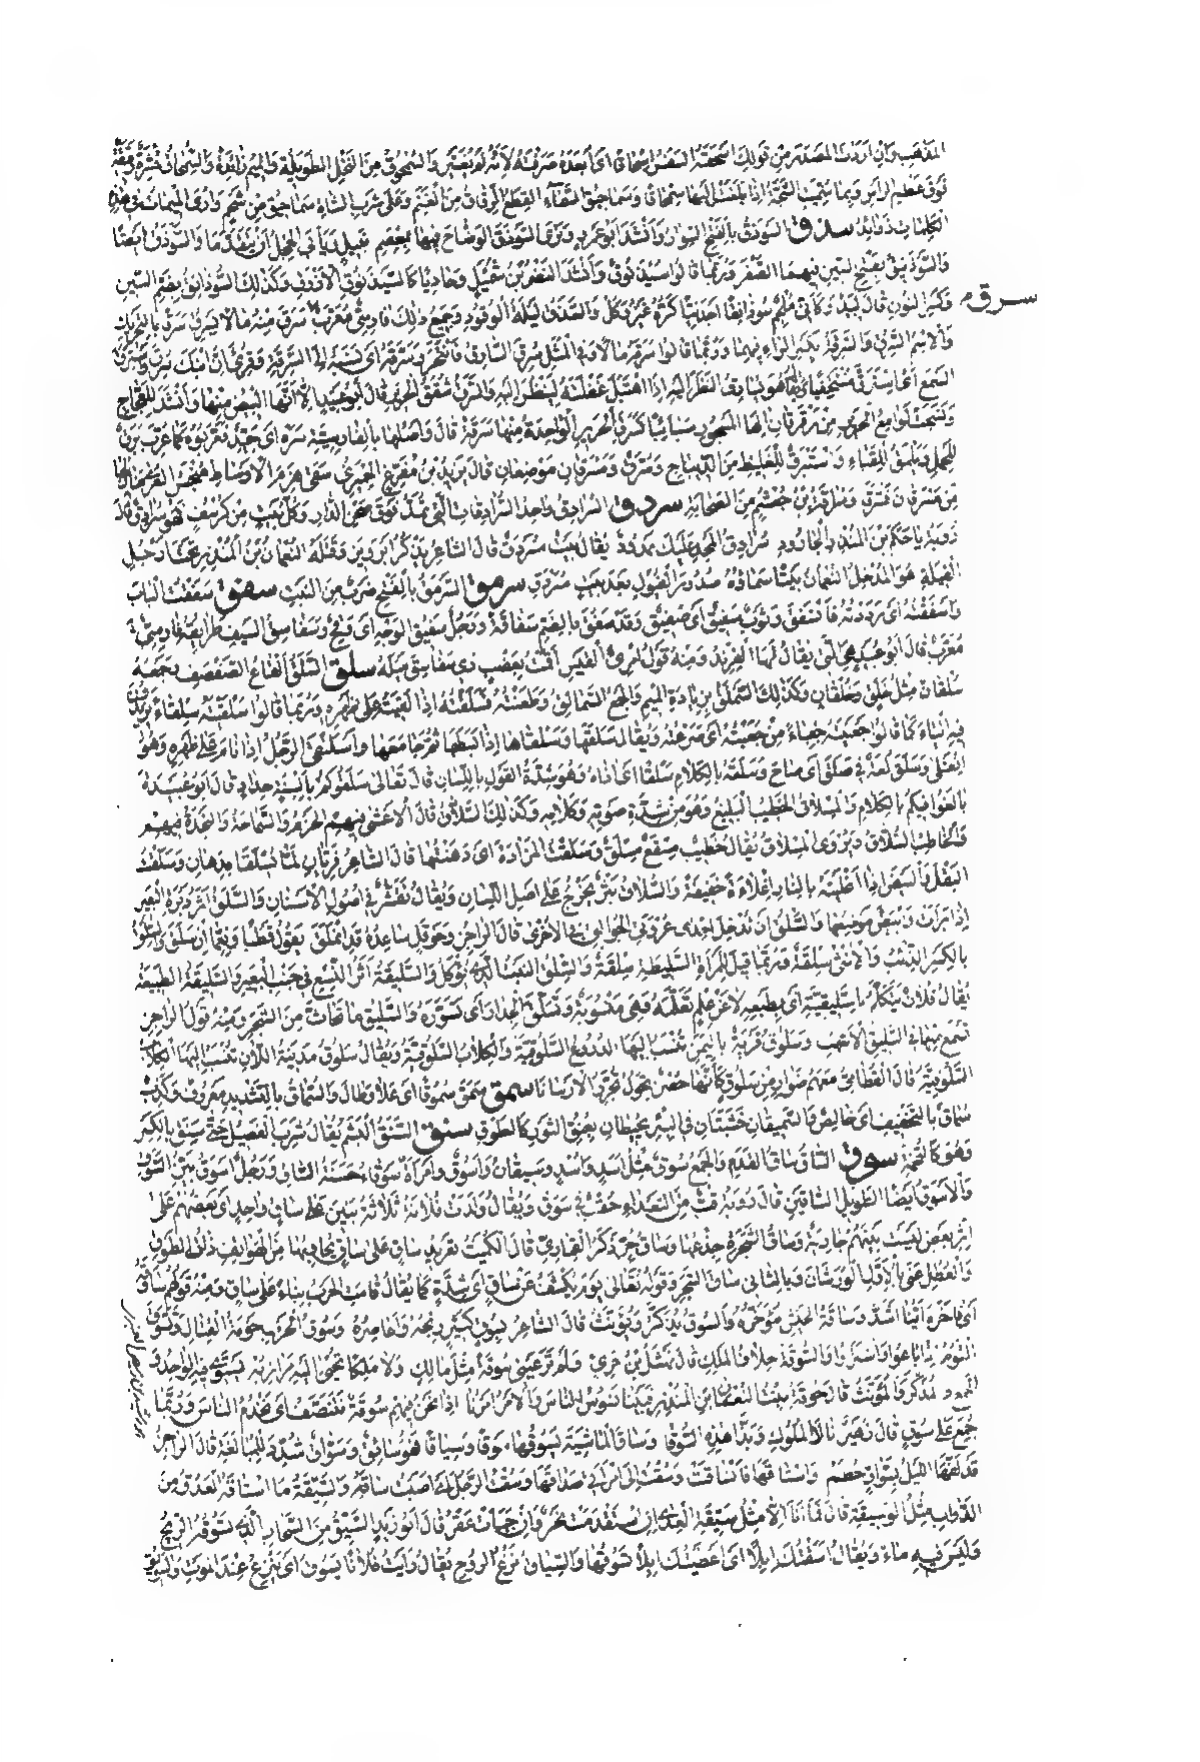 المذهب وان اردت المصدر من قولك اسحقته السفر اسحاقا اى ابعده صرفته لانه لم يتغير والسحوق من النخل الطويلة والميم زائدة والسمحاق قشرة رقيقة
فوق عظم الراس وبها سميت الشجة اذا بلغت اليها سمحاقا وسماحيق السماء القطع الرقاق من الغيم وعلى ثرب الشاة سماحيق من شحم وارى الميمات فى هذه
الكلمات زوائد سذق السوذق بالفتح السوار وانشد ابو عمرو ترى السوذق الوضاح فيها بمعصم نبيل ويأبى الحجل ان يتقدما والسوذق ايضا
والسوذنيق بفتح السين فيهما الصقر وربما قالوا سيذنوق وانشد النضر بن شميل وحاديا كالسيذنوق الازرق وكذلك السوذانق بضم السين
وكسر النون قال لبيد وكأنى ملجم سوذانقا اجدليا كره غير وكل والسذق ليلة الوقود وجميع ذلك فارسى معرب سرق سرق منه مالا يسرق سرقا بالتحريك
والاسم السرق والسرقة بكسر الراء فيهما وربما قالوا سرقه مالا وفى المثل سرق السارق فانتحر وسرقه اى نسبه الى السرقة وقرئ ان ابنك سرق واسترق
السمع اى استرق مستخفيا ويقال هو يسارق النظر اليه اذا اهتبل غفلته لينظر اليه والسرق شقق الحرير قال ابو عبيد الا انها البيض منها وانشد للعجاج
ونسجت لوامع الحرور من رقرقان آلها المسجور سبائبا كسرق الحرير الواحدة منها سرقة قال واصلها بالفارسية سره اى جيد فعربوه كما عرب برق
للحمل ويلمق للقباء واستبرق للغليظ من الديباج وسرق ومسرقان موضعان قال يزيد بن مفرغ الحميرى سقى هزم الاوساط منبجس العرى منازلها
من مسرقان فسرقا وسراقة بن جعشم من الصحابة سردق السرادق واحد السرادقات التى تمد فوق صحن الدار وكل بيت من كرسف فهو سرادق قال
رؤبة يا حكم بن المنذر بن الجارود سرادق المجد عليك ممدود يقال بيت مسردق قال الشاعر يذكر ابرويز وقتله النعمان بن المنذر تحت ارجل
الفيلة هو المدخل النعمان بيتا سماؤه صدور الفيول بعد بيت مسردق سرمق السرمق بالفتح ضرب من النبت سفق سفقت الباب
واسفقته اى رددته فانسفق وثوب سفيق اى صفيق وقد سفق بالضم سفاقة ورجل سفيق الوجه اى وقح وسفاسق السيف طرائقه فارسى
معرب قال ابو عبيد هى التى يقال لها الفرند ومنه قول امرئ القيس اقمت بعضب ذى سفاسق ميله سلق السلق القاع الصفصف وجمعه
سلقان مثل خلق وخلقان وكذلك السملق بزيادة الميم والجمع السمالق وطعنته فسلقته اذا القيته على ظهره وربما قالوا سلقيته سلقاء يزيدون
فيه الياء كما قالوا جعبيته جعباء من جعبته اى صرعته ويقال سلقها وسلقاها اذا بسطها ثم جامعها واسلنقى الرجل اذا نام على ظهره وهو
افعنلى وسلق لغة فى صلق اى صاح وسلقه بالكلام سلقا اى اذاه وهو شدة القول باللسان قال تعالى سلقوكم بالسنة حداد قال ابو عبيدة
بالغوا فيكم بالكلام والمسلاق الخطيب البليغ وهو من شدة صوته وكلامه وكذلك السلاق قال الاعشى فيهم الحزم والسماحة والنجدة فيهم
والخاطب السلاق ويروى المسلاق يقال خطيب مسقع مسلق وسلقت المزادة اى دهنتها قال الشاعر فريان لما تسلقا بدهان وسلقت
البقل والبيض اذا اغليته بالنار اغلاءة خفيفة والسلاق بثر يخرج على اصل اللسان ويقال تقشر فى اصول الاسنان والسلق اثر دبرة البعير
اذا برات وابيض موضعها والسلق ان تدخل احدى عروتى الجوالق فى الاخرى قال الراجز وحوقل ساعده قد انملق يقول قطبا ونعما ان سلق والسلق
بالكسر الذئب والانثى سلقة وربما قيل للمراة السليطة سلقة والسلق النبت الذى يؤكل والسليقة اثر النسع فى جنب البعير والسليقة الطبيعة
يقال فلان يتكلم بالسليقية اى بطبعه لا عن تعلم فهى منسوبة وتسلق الجدار اى تسوره والسليق ما تحات من الشجر ومنه قول الراجز
تسمع منها فى السليق الاشهب وسلوق قرية باليمن تنسب اليها الدروع السلوقية والكلاب السلوقية ويقال سلوق مدينة اللان تنسب اليها الكلاب
السلوقية قال القطامى معهم ضوار من سلوق كأنها حصن تجول تجرر الارسانا سمق سمق سموقا اى علا وطال والسماق بالتشديد معروف وكذب
سماق بالتخفيف اى خالص والسميقان خشبتان فى النير يحيطان بعنق الثور كالطوق سنق السنق البشم يقال شرب الفصيل حتى سنق بالكسر
وهو كالتخمة سوق الساق ساق القدم والجمع سوق مثل اسد واسد وسيقان واسوق وامراة سوقاء حسنة الساق ورجل اسوق بين السوق
والاسوق ايضا الطويل الساقين قال رؤبة قب من التعداء حقب فى سوق ويقال ولدت فلانة ثلاثة بنين على ساق واحد اى بعضهم على
اثر بعض ليست بينهم جارية وساق الشجرة جذعها وساق حر ذكر القمارى قال الكميت تغريد ساق على ساق يجاوبها من الهواتف ذات الطوق
والعطل عنى بالاول الورشان وبالثانى ساق الشجر وقوله تعالى يوم يكشف عن ساق اى شدة كما يقال قامت الحرب على ساق ومنه قولهم ساقه
وساقة الجيش مؤخره والسوق يذكر ويؤنث قال الشاعر بسوق كثير ريحه واعاصره وسوق الحرب حومة القتال وتسوق
القوم اذا باعوا واشتروا والسوقة خلاف الملك قال نهشل بن حرى ولم تر عينى سوقة مثل مالك ولا ملكا تجبى اليه مرازبه يستوى فيه الواحد و
الجمع والمذكر والمؤنث قالت حرقة بنت النعمان بن المنذر فبينا نسوس الناس والامر امرنا اذا نحن فيهم سوقة نتنصف اى نخدم الناس وربما
جمع على سوق قال زهير نالا الملوك وبذا هذه السوقا وساق الماشية يسوقها سوقا وسياقا فهو سائق وسواق شدد للمبالغة قال الراجز
قد لفها الليل بسواق حطم واستاقها فانساقت وسقت الى امراتى صداقها وسقت الرجل اى اصبت ساقه والسيقة ما استاقه العدو من
الدواب مثل الوسيقة قال فما انا الا مثل سيقة العدى ان استقدمت نحر وان جبات عقر قال ابو زيد السيق من السحاب الذى تسوقه الريح
وليس فيه ماء ويقال اسقتك ابلا اى اعطيتك ابلا تسوقها والسياق نزع الروح يقال رايت فلانا يسوق اى ينزع عند الموت والسويق
سرق